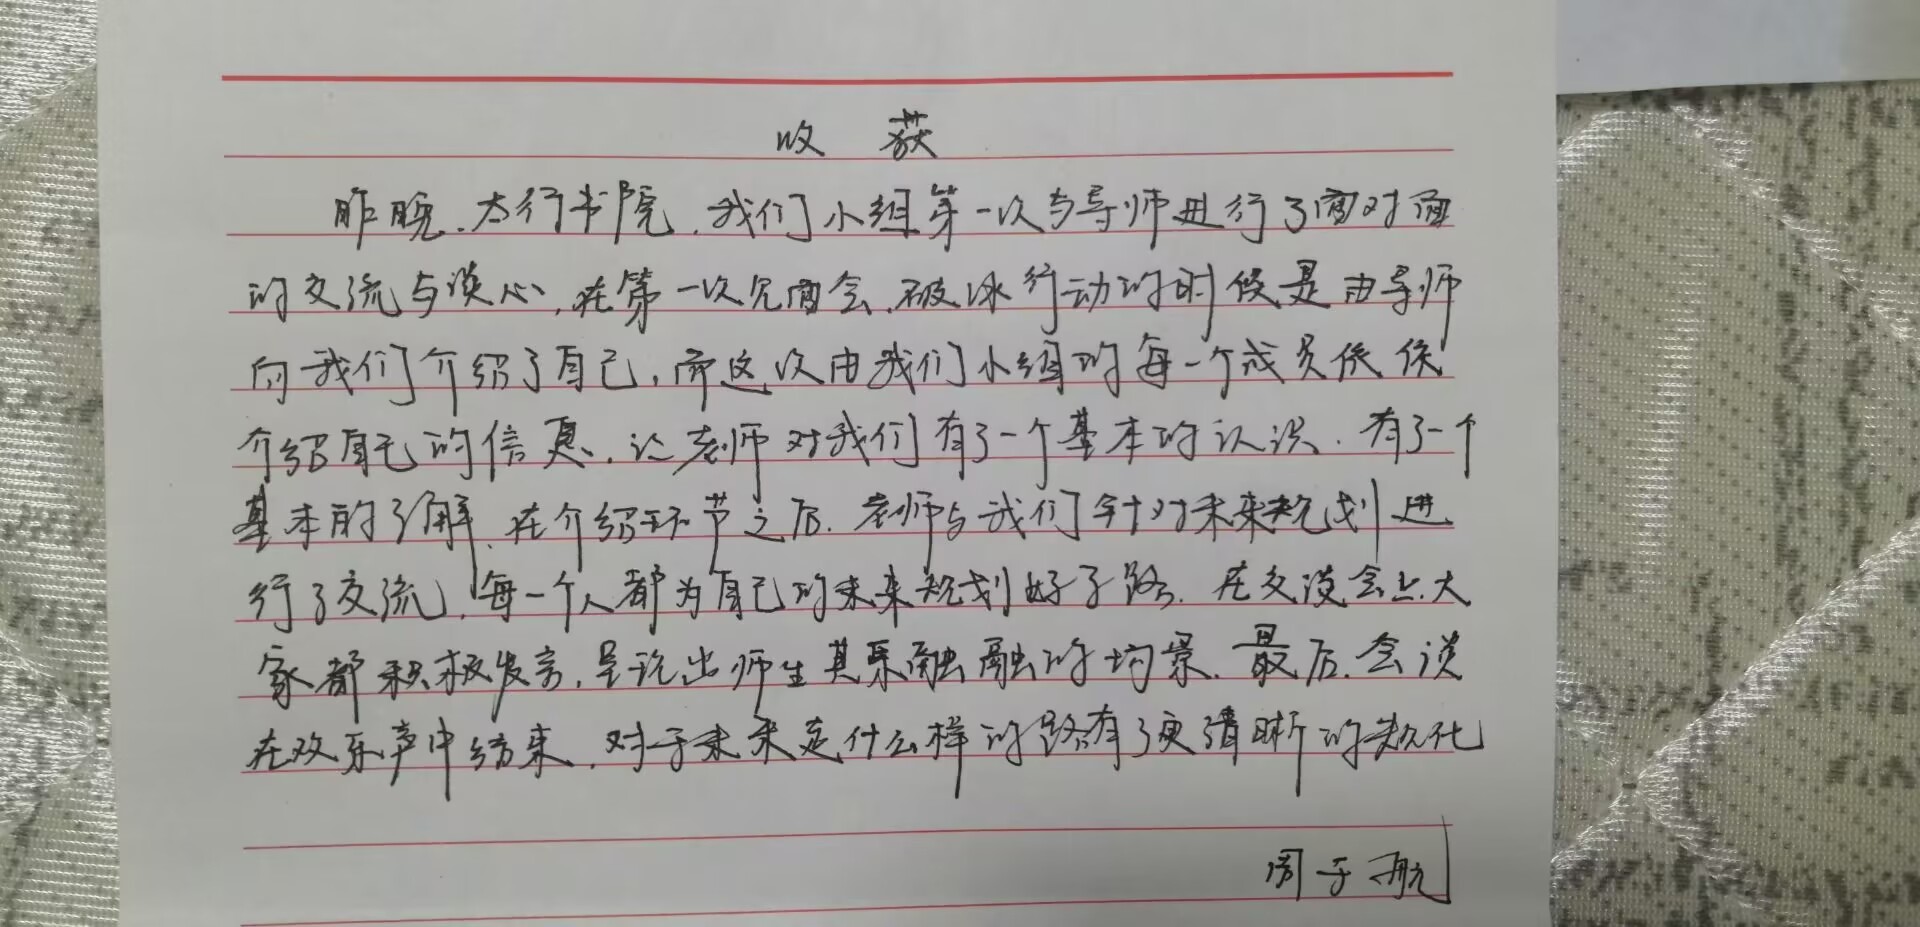 收 获
昨晚.太行书院.我们小组第一次与导师进行了面对面
的交流与谈心,在第一次见面会.破冰行动的时候是由导师
向我们介绍了自己,而这次由我们小组的每一个成员依依
介绍自己的信息.让老师对我们有了一个基本的认识.有了一个
基本的了解.在介绍环节之后.老师与我们针对未来规划进
行了交流,每一个人都为自己的未来规划好了路.在交谈会上大
家都积极发言,呈说出师生其乐融融的场景.最后.会谈
在欢乐声中结束.对于未来走什么样的路有了更清晰的规化
周于航